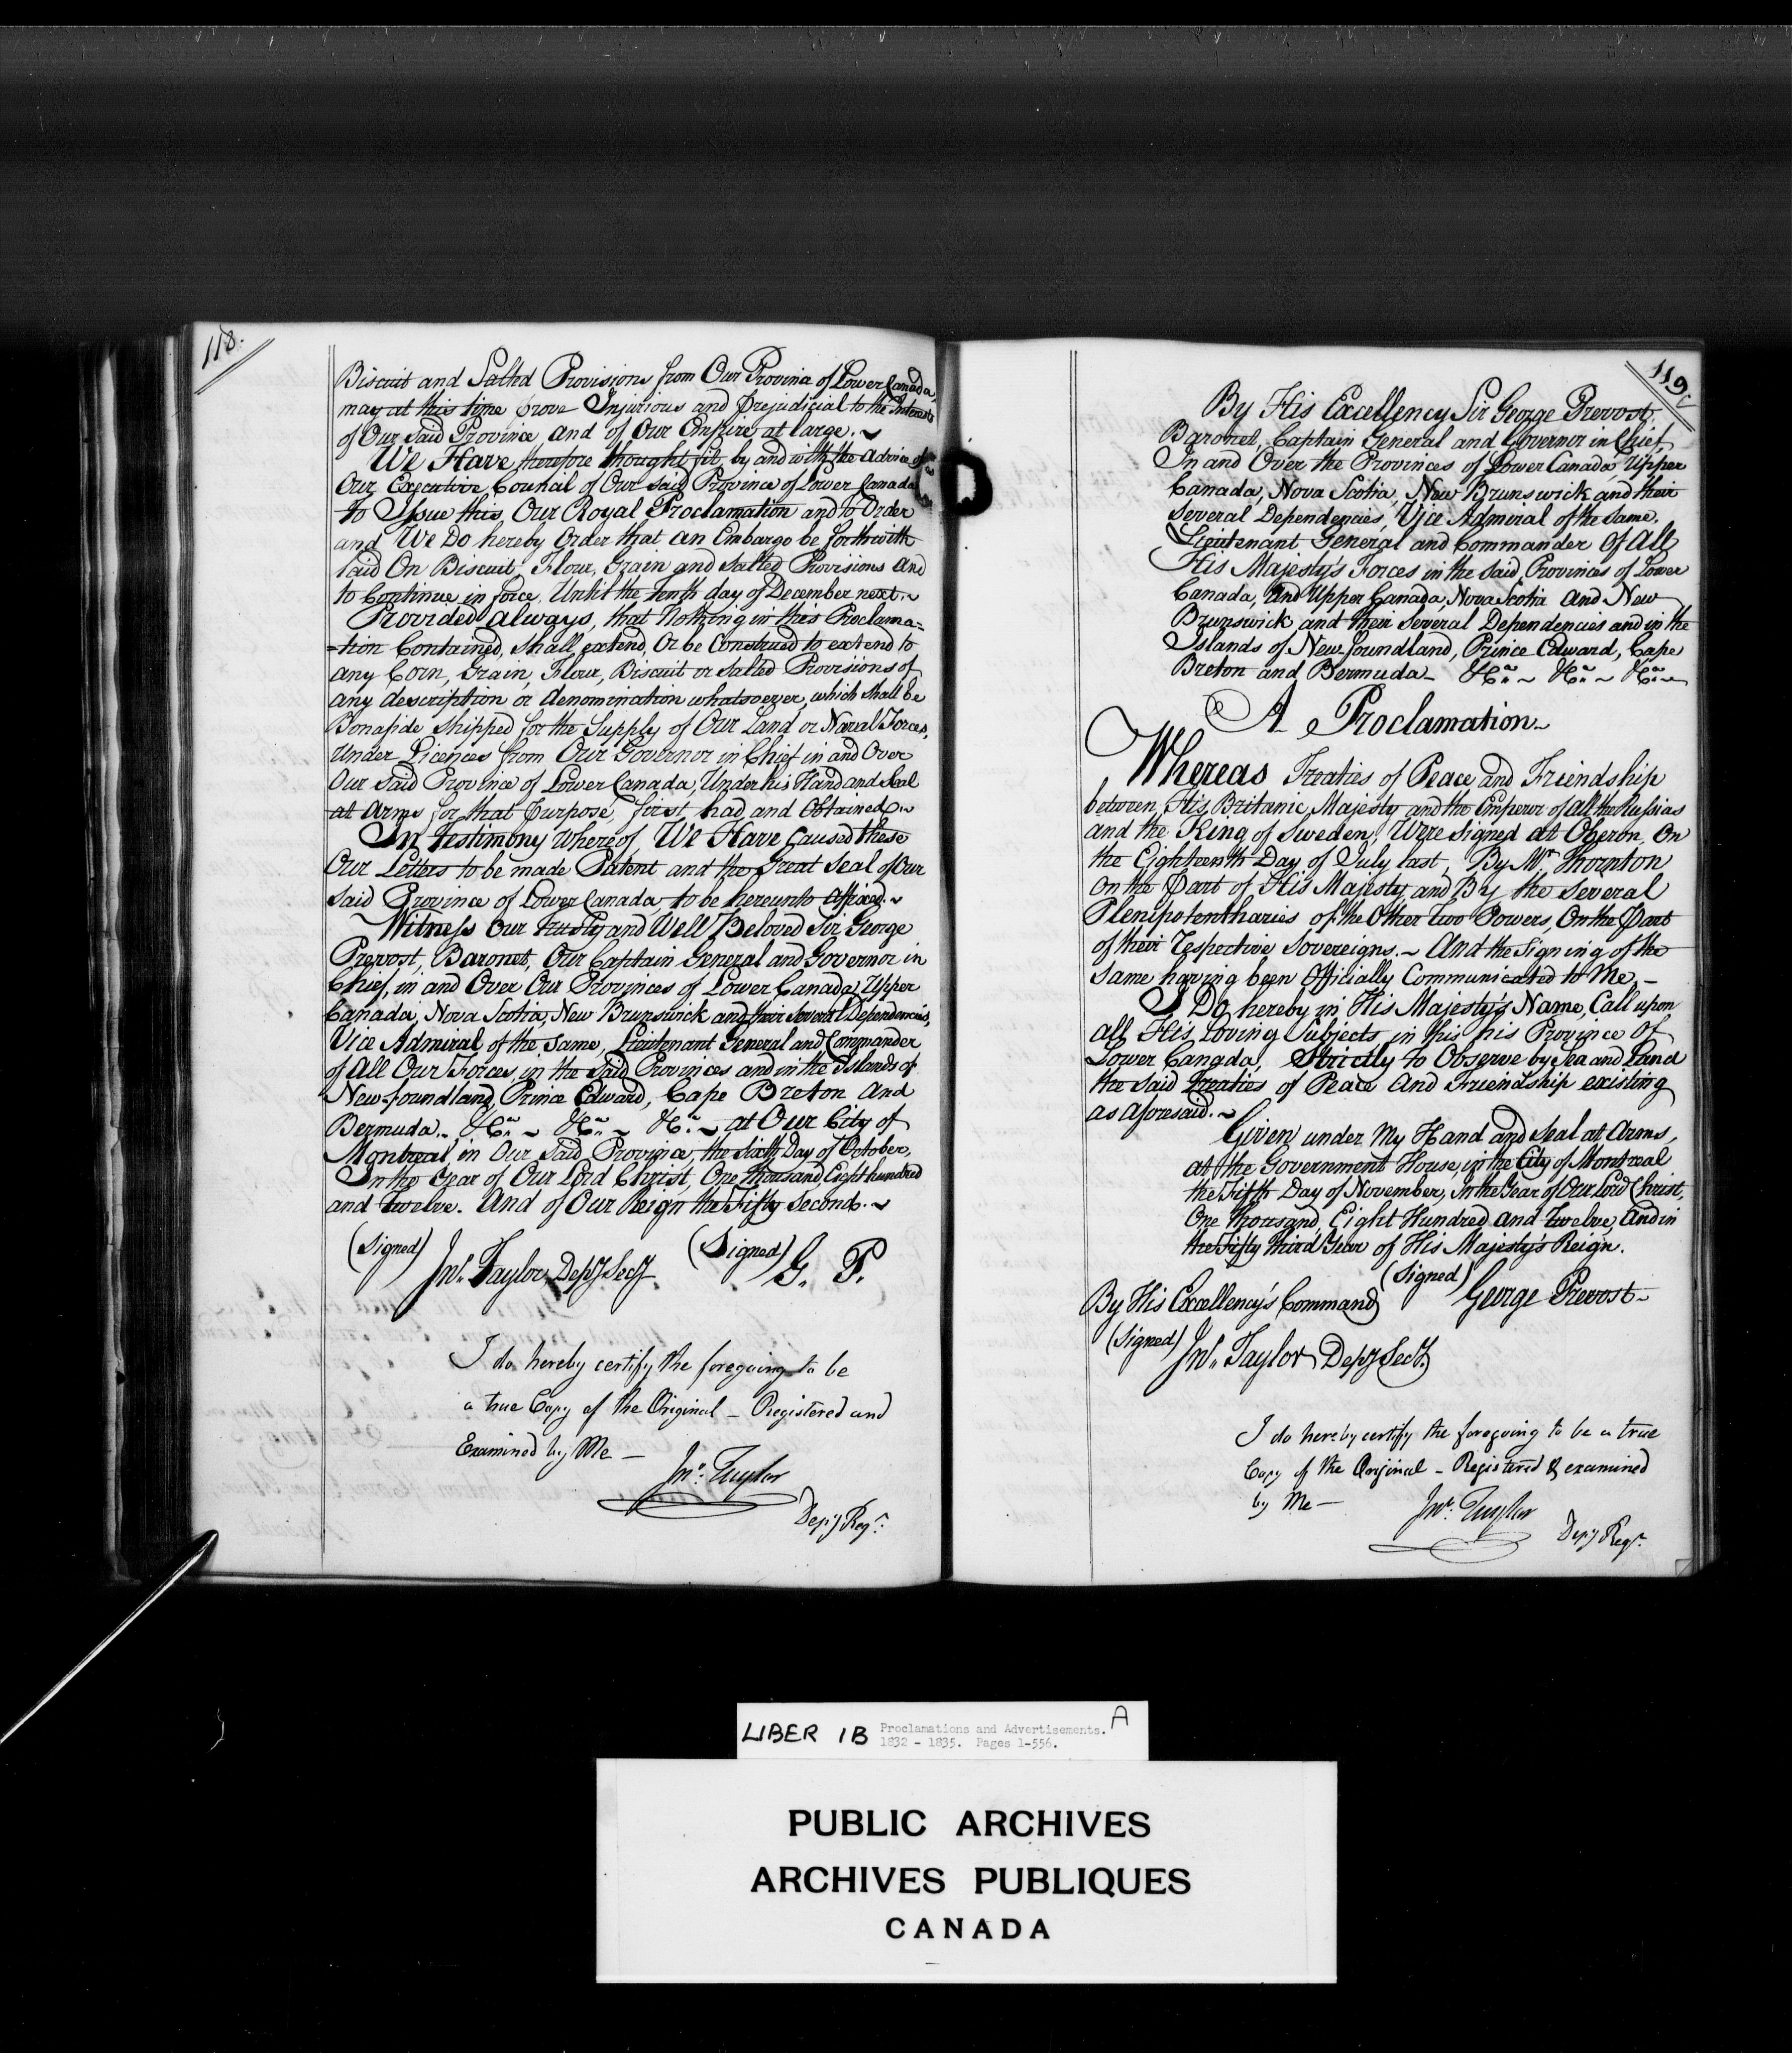 118.
Biscuit and Salted Provisions from Our Province of Lower Canada,
may at this time prove Injurious and prejudicial to the Interests
of Our Said Province and of Our Empire at large. ~
We Have therefore thought fit, by and with the Advice of
Our Executive Council of Our said Province of Lower Canada
to Issue this Our Royal Proclamation and to Order
and We Do hereby Order that an Embargo be forthwith
laid On Biscuit, Flour, Grain and Salted Provisions and
to Continue in force Until the tenth day of December next. ~
Provided always, that Nothing in this Proclama=
=tion Contained, shall extend, Or be Construed to extend to
any Corn, Grain, Flour, Biscuit or Salted Provisions of
any description or denomination whatsoever, which shall be
Bonafide shipped for the Supply of Our Land or Naval Forces,
Under Licences from Our Governor in Chief in and Over
Our Said Province of Lower Canada, Under his Hand and Seal
at Arms for that purpose, first had and Obtained. ~
In Testimony Whereof, We Have Caused these
Our Letters to be made Patent and the Great Seal of Our
Said Province of Lower Canada, to be hereunto Affixed. ~
Witness Our trusty and Well Beloved Sir George
Prevost, Baronet, Our Captain General and Governor in
Chief, in and Over Our Provinces of Lower Canada, Upper
Canada, Nova Scotia, New Brunswick and their Several Dependencies,
Vice Admiral of the Same, Lieutenant General and Commander
of All Our Forces, in the Said Provinces and in the Islands of
New-foundland, Prince Edward, Cape Breton and
Bermuda. &ca. ~ &ca. ~ &ca. ~ at Our City of
Montreal in Our Said Province, the Sixth Day of October,
In the Year of Our Lord Christ, One thousand, Eight hundred
and Twelve. And of Our Reign the Fifty Second. ~
(Signed) Jno. Taylor, Depy Secy (Signed) G. P.
I do hereby certify the foregoing to be
a true Copy of the Original _ Registered and
Examined by Me —
Jno. Taylor
Depy Regr.
119
By His Excellency Sir George Prevost
Baronet, Captain General and Governor in Chief,
In and Over the Provinces of Lower Canada, Upper
Canada, Nova Scotia, New Brunswick and their
Several Dependencies, Vice Admiral of the Same.
Lieutenant General and Commander Of All
His Majesty's Forces in the Said Provinces of Lower
Canada, and Upper Canada, Nova Scotia and New
Brunswick and their Several Dependencies and in the
Islands of New foundland, Prince Edward, Cape
Breton and Bermuda _ &ca. ~ &ca. ~ &ca. ~
A Proclamation _
Whereas Treaties of Peace and Friendship
between His Britanic Majesty and the Emperor of All the Russias
and the King of Sweden, Were signed at Oberon, On
the Eighteenth Day of July last, By Mr. Thornton
On the Part of His Majesty, and By the Several
Plenipotentharies of the Other Two Powers, On the Part
of their respective Sovereigns. ~ And the Signing of the
Same having been Officially Communicated to Me, _
I Do hereby in His Majesty's Name, Call upon
all His Loving Subjects in this his Province Of
Lower Canada, Strictly to Observe by Sea and Land
the said Treaties of Peace and Friendship existing
as aforesaid. ~
Given under My Hand and Seal at Arms,
at the Government House, in the City of Montreal
the Fifth Day of November, In the Year of Our Lord Christ,
One Thousand, Eight Hundred and Twelve, And in
the Fifty third Year of His Majesty's Reign.
(Signed) George Prevost _
By His Excellency's Command
(Signed) Jno. Taylor Depy Secy.
I do hereby certify the foregoing to be a true
Copy of the Original _ Registered & examined
by Me —
Jno. Taylor
Depy Regr.
LIBER 1B Proclamations and Advertisements. A
1832 - 1835. Pages 1-556.
PUBLIC ARCHIVES
ARCHIVES PUBLIQUES
CANADA